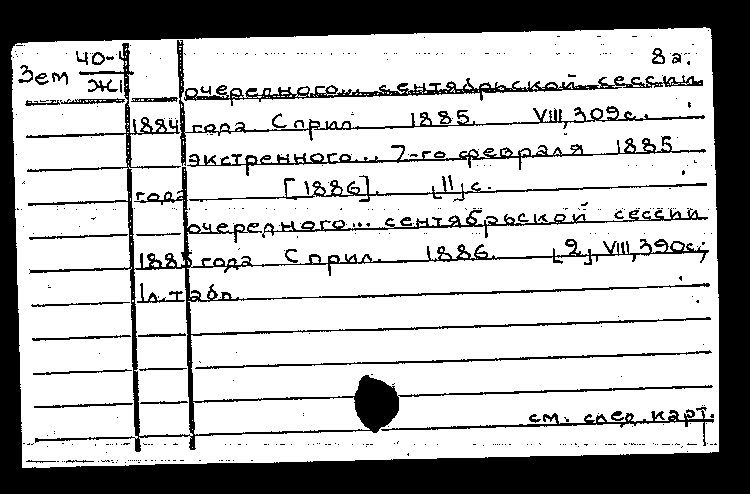 40-4 8а.
Зем ЖI
очередного... сентябрьской сессии
1884 года С прил. 1885. VIII, 309с.
экстренного... 7-го февраля 1885
года [1886]. [11] с.
очередного... сентябрьской сессии
1885 года С прил. 1886. [2], VIII, 390с.;
1л. табл.
см. след. карт.